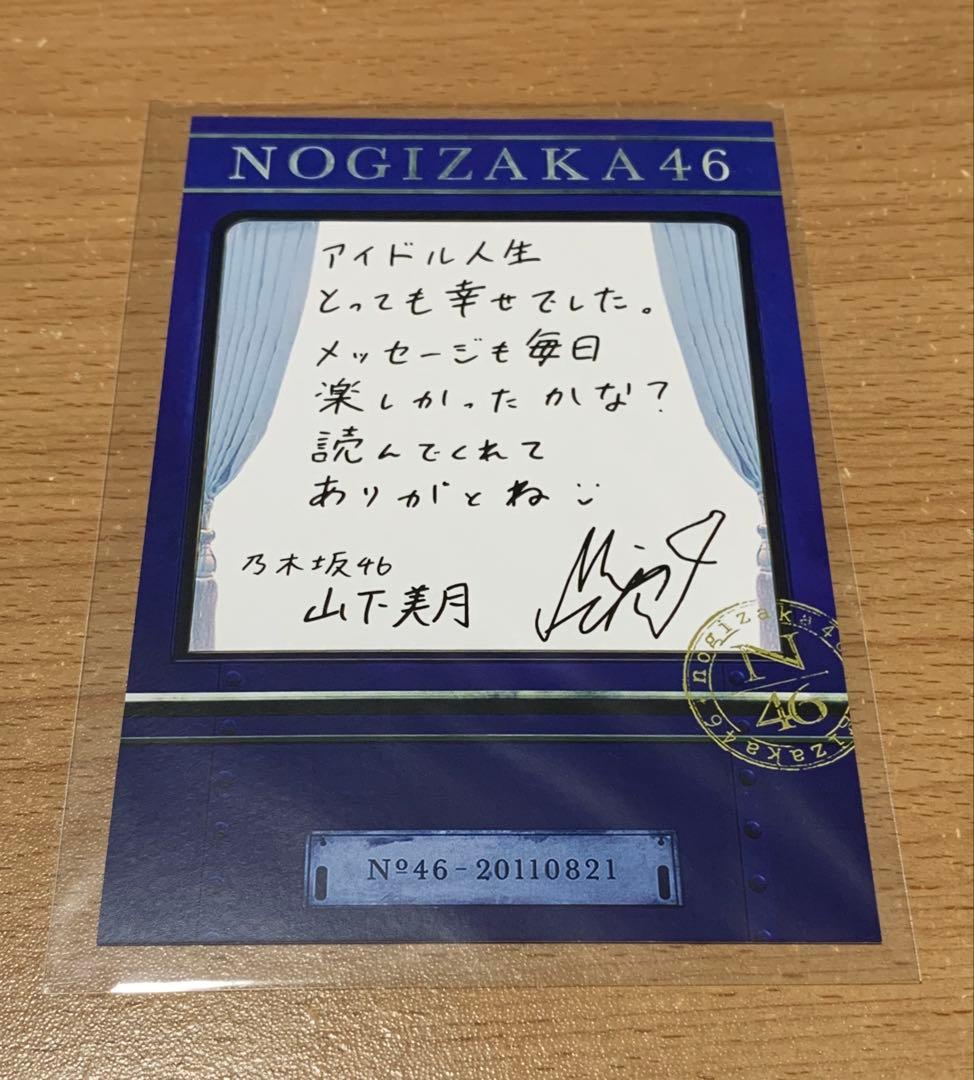 NOGIZAKA46
アイドル人生
とっても幸せでした。
メッセージも毎日
楽しかったかな?
読んでくれて
ありがとね
乃木坂46
山下美月
nogizaka46
N
46
nogizaka46
Nº46-20110821